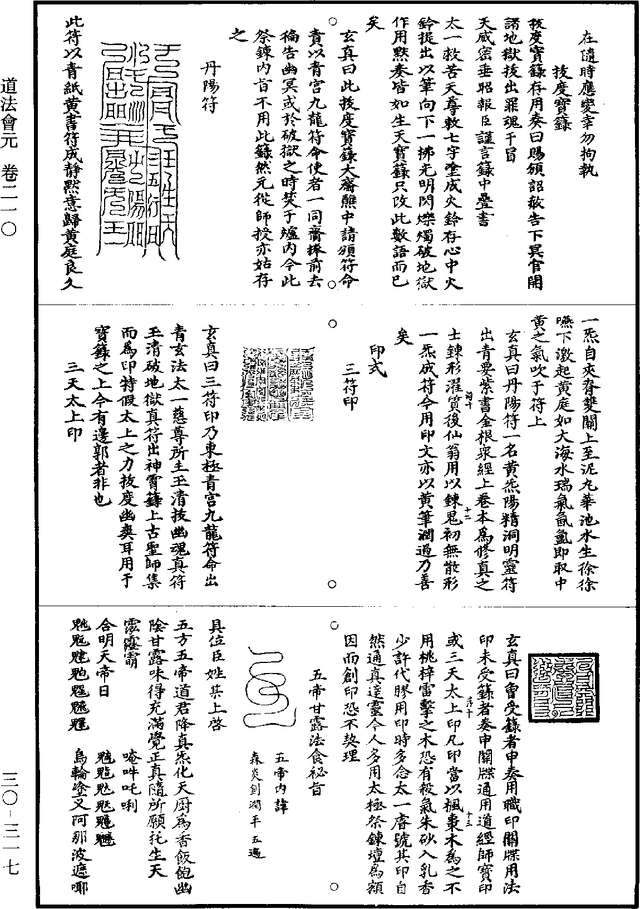 在隨時應變幸勿拘執
拔度寶籙
拔度寶籙存用奏曰賜頒詔敕告下冥官開
諸地獄拔出罪魂干冒
天威密垂昭報臣謹言籙中疊書
太一救苦天尊數七字塗成火鈴存心中火
鈴提出以筆向下一拂光明閃爍燭破地獄
作用默奏皆如生天寶籙只改此數語而已
矣
玄真曰此拔度寶籙大齋醮中請頒符命
責以青宮九龍符命使者一同齎捧前去
徧告幽冥或於破獄之時焚于爐內今此
祭鍊內首不用此籙然元從師授亦姑存
之
丹陽符
此符以青紙黃書符成靜默意歸黃庭良久
一炁自夾脊雙關上至泥丸華池水生徐徐
嚥下激起黃庭如大海水瑞氣氤氳即取中
黃之氣吹于符上
玄真曰丹陽符一名黃炁陽精洞明靈符
出青要紫書金根眾經上卷本為修真之
士鍊形濯質後仙翁用以鍊鬼初無散形
一炁成符今用印文亦以黃筆潤過乃善
矣
印式
三符印
玄真曰三符印乃東極青宮九龍符命出
青玄法太一慈尊所主玉清拔幽魂真符
玉清破地獄真符出神霄籙上古聖師集
而為印特假太上之力拔度幽爽耳用于
寶籙之上今有邊郭者非也
三天太上印
玄真曰曾受籙者申奏用職印關牒用法
印未受籙者奏申關牒通用道經師寶印
或三天太上印凡印當以楓棗木為之不
用桃梓雷擊之木恐有殺氣朱砂入乳香
少許代膠用印時多念太一尊號其印自
然通真達靈今人多用太極祭鍊壇為額
因而創印恐不契理
五帝甘露法食秘旨
五帝內諱
森炎釗潤平五遍
具位臣姓某上啓
五方五帝道君降真炁化天厨為香飯飽幽
陰甘露味得充滿覺正真隨所願託生天
唵吽吒唎
含明天帝日
烏輪塗叉阿那波遮哪
道法會元 卷二一〇
三〇-三一七